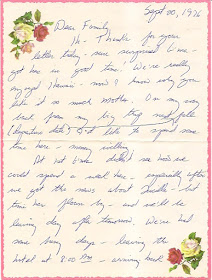 Sept 20, 1976
Dear Family
Hi - Thanks for your
letter today - sure surprised me -
got here in good time! We're really
enjoyed Hawaii - now I know why you
like it so much mother. On my way
back from my big
(departure date) I'd like to spend some
time here - money willing.
At
could spend a week here - especially after
we got the news about
here - and we'll be
leaving day after tomorrow. We've had
some busy days - leaving the
hotel at 8:00 - arriving back